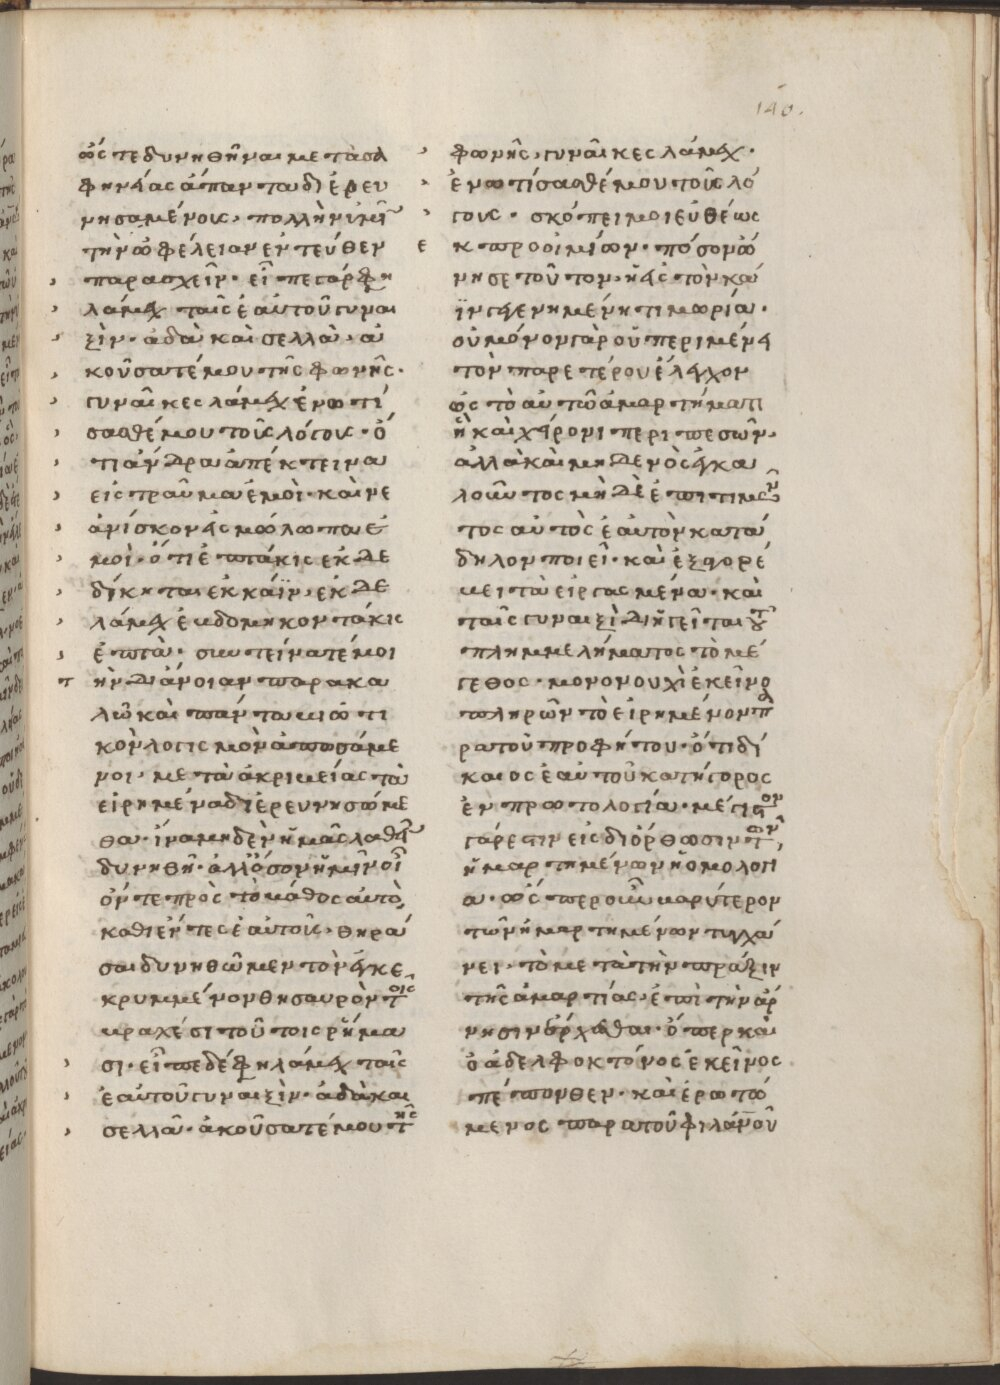 140.
ὥς τε δυνηθῆναι μετὰ σα
φηνείας ἅπαντα διερευ
νησαμένοις, πολλὴν ὑμῖ
τὴν ὠφέλειαν ἐντεῦθεν
παρασχεῖν· εἶπε γάρ φη
λάμεχ ταῖς ἑαυτοῦ γυναι
ξὶν· ἀδὰ καὶ σελλὰ· ἀ
κούσατέ μου τῆς φωνῆς·
γυναῖκες λάμεχ ἐνωτί
σασθέ μου τοὺς λόγους· ὅ
τι ἄνδρα ἀπέκτεινα
εἰς τραῦμα ἐμοὶ· καὶ νε
ανίσκον εἰς μώλωπα ἐ
μοὶ· ὅτι ἑπτάκις ἐκδε
δίκηται ἐκ κάϊν· ἐκ δὲ
λάμεχ ἑβδομηκοντάκις
ἑπτὰ· συντείνατέ μοι
τὴν διάνοιαν παρακα
λῶ καὶ πάντα βιωτι
κὸν λογισμὸν ἀπωσάμε
νοι· μετὰ ἀκριβείας τὰ
εἰρημένα διερευνησώμε
θα· ἵνα μηδὲν ἡμᾶς λαθεῖ
δυνηθῇ· ἀλλ' ὅσον ἡμῖν οἷ
όν τε πρὸς τὸ βάθος αὐτὸ,
καθιέντες ἑαυτοὺς· θηρᾶ
σαι δυνηθῶμεν τὸν ἐγκε
κρυμμένον θησαυρὸν τοῖς
βραχέσι τούτοις ῥήμα
σι· εἶπε δέ φη λάμεχ ταῖς
ἑαυτοῦ γυναιξὶν· ἀδὰ καὶ
σελλᾶ· ἀκούσατέ μου τῆς
φωνῆς, γυναῖκες λάμεχ·
ἐνωτίσασθέ μου τοὺς λό
γους· σκόπει μοι εὐθέως
ἐκ προοιμίων· πόσον ὤ
νησε τοῦτον· ἡ εἰς τὸν κά
ϊν γεγενημένη τιμωρία·
οὐ μόνον γὰρ οὐ περιμένει
τὸν παρ' ἑτέρου ἔλεγχον
ὡς τὸ αὐτῶ ἁμαρτήματι
ἢ καὶ χείρονι περιπεσὼν·
ἀλλὰ καὶ μηδενὸς ἐγκα
λοῦντος μηδὲ ἐπιτιμῶν
τος αὐτὸς ἑαυτὸν κατά
δηλον ποιεῖ· καὶ ἐξαγορέ
υει τὰ εἰργασμένα· καὶ
ταῖς γυναιξὶ διηγεῖται τοῦ
πλημμελήματος τὸ μέ
γεθος· μονονουχὶ ἐκεῖνο
πληρῶν τὸ εἰρημένον πα
ρὰ τοῦ προφήτου· ὅτι δί
καιος ἑαυτοῦ κατήγορος
ἐν πρωτολογία· μέγιστον
γάρ ἐστιν εἰς διόρθωσιν τῶν,
ἡμαρτημένων ἡ ὁμολογί
α· ὥς περ οὖν βαρύτερον
τῶν ἡμαρτημένων τυγχά
νει· τὸ μετὰ τὴν πρᾶξιν
τῆς ἁμαρτίας· ἐπὶ τὴν ἄρ
νησιν ἔρχεσθαι· ὅπερ καὶ
ὁ ἀδελφοκτόνος ἐκεῖνος
πέπονθεν· καὶ ἐρωτώ
μενος παρὰ τοῦ φιλανοῦ